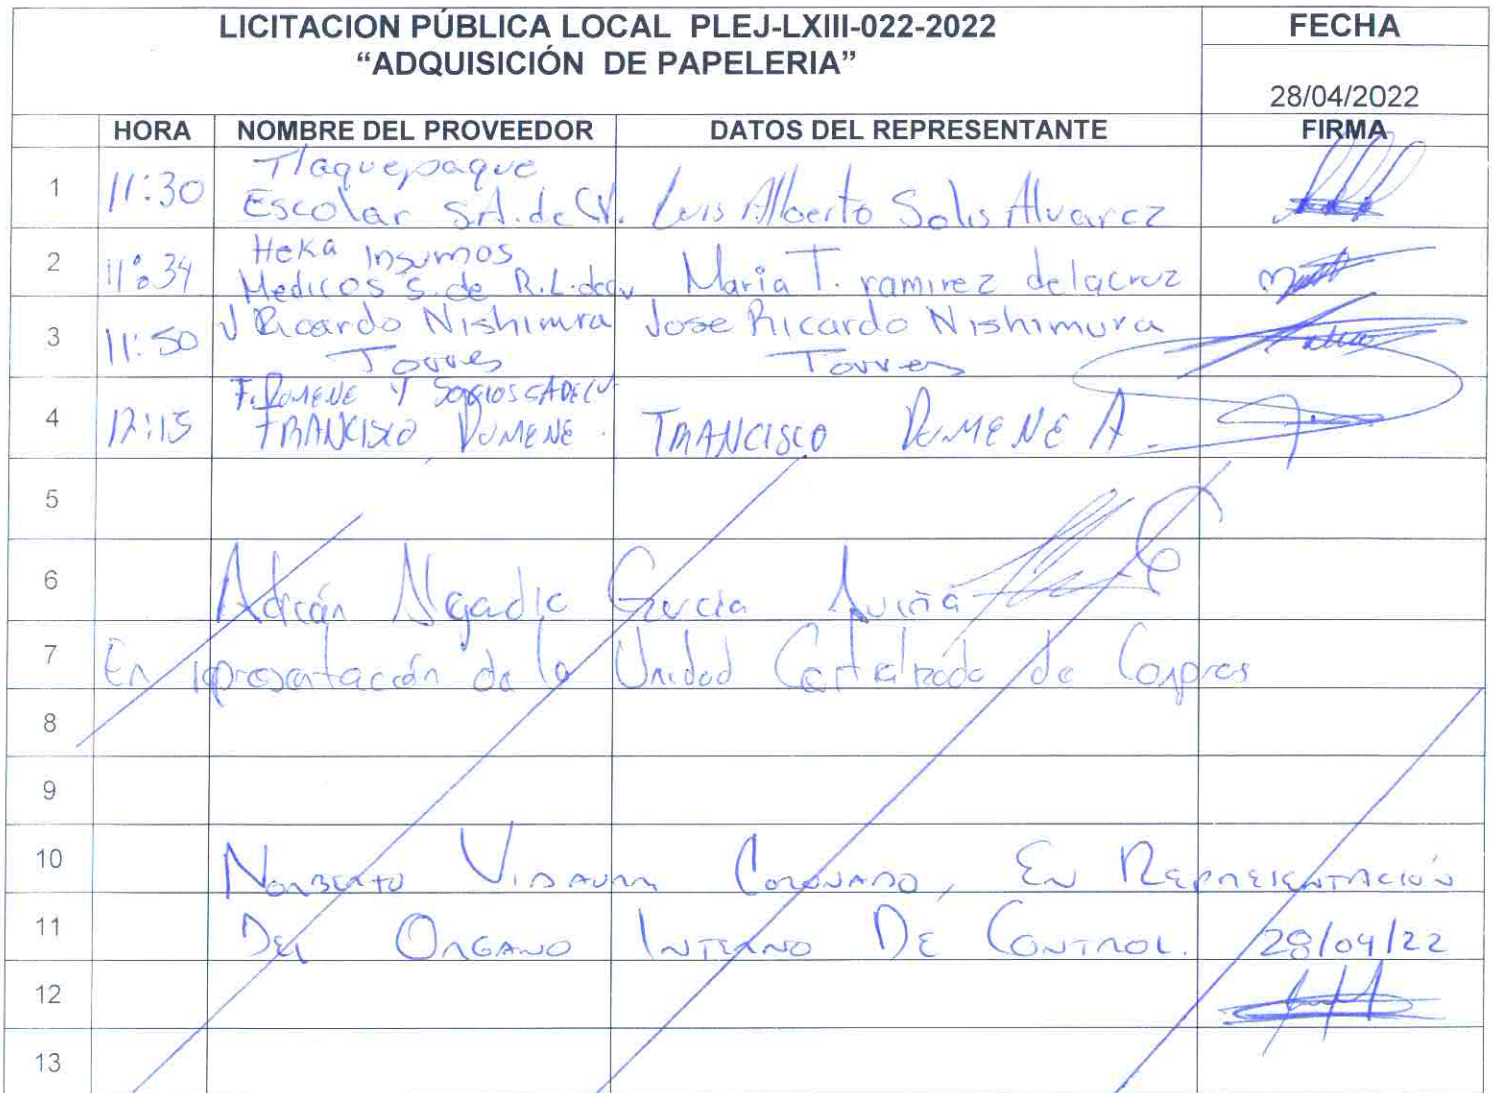 LICITACION PÚBLICA LOCAL PLEJ-LXIII-022-2022
"ADQUISICIÓN DE PAPELERIA"
FECHA
28/04/2022
HORA NOMBRE DEL PROVEEDOR DATOS DEL REPRESENTANTE FIRMA
1 11:30 Tlaquepaque
Escolar S.A. de C.V. Luis Alberto Solis Alvarez
2 11:34 Heka Insumos
Medicos S. de R.L. de cv Maria T. ramirez delacruz
3 11:50 J Ricardo Nishimra Jose Ricardo Nishimura
Torres Torres
4 12:15 F. DUMENE Y SOCIOS SADECV
FRANCISCO DUMENE. FRANCISCO DUMENE A.
5
6 Adrián García Aviña
7 En representación de la Unidad Centralizada de Compras
8
9
10 NORBERTO VIDAURRI CORONADO, EN REPRESENTACIÓN
11 DEL ORGANO INTERNO DE CONTROL. 28/04/22
12
13